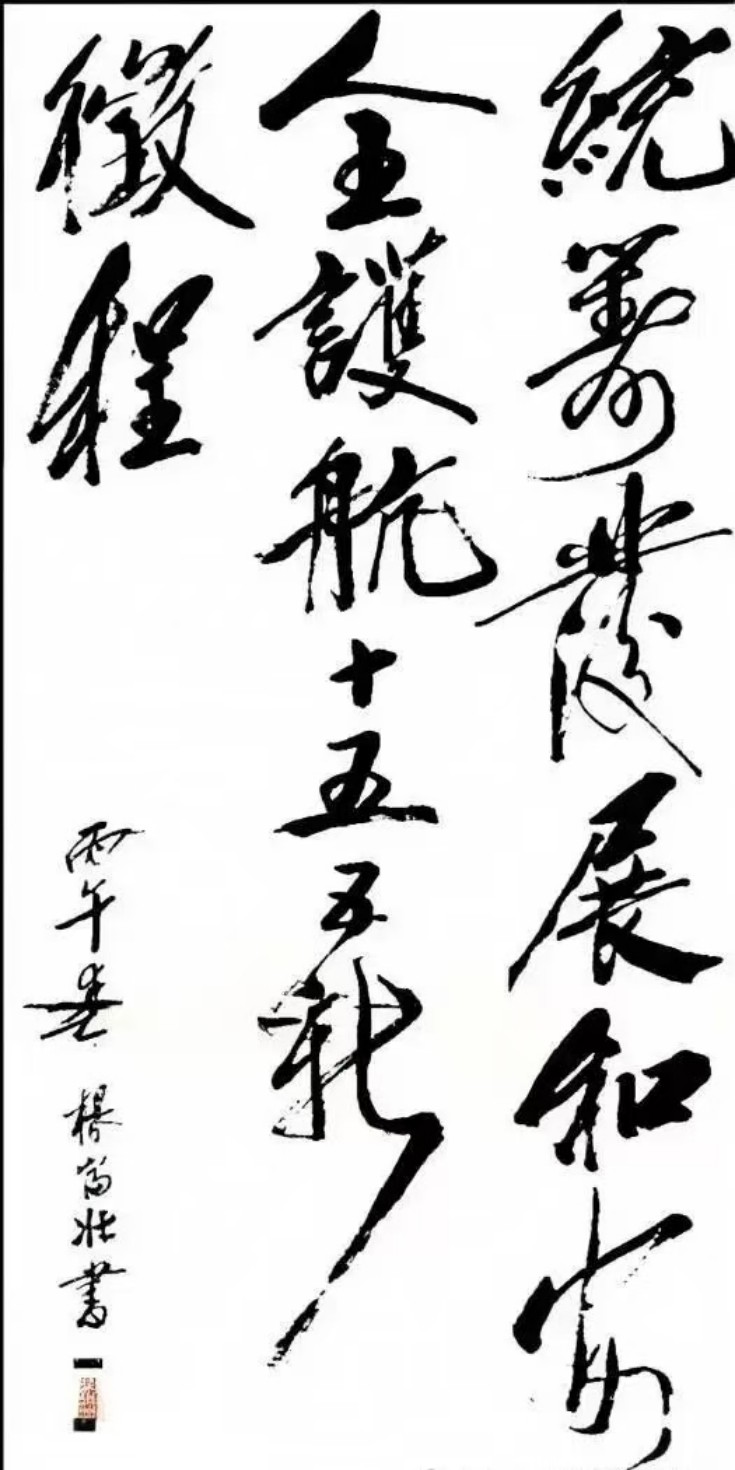 統籌發展和安
全護航十五五新
徵程
丙午春 楊富壯書